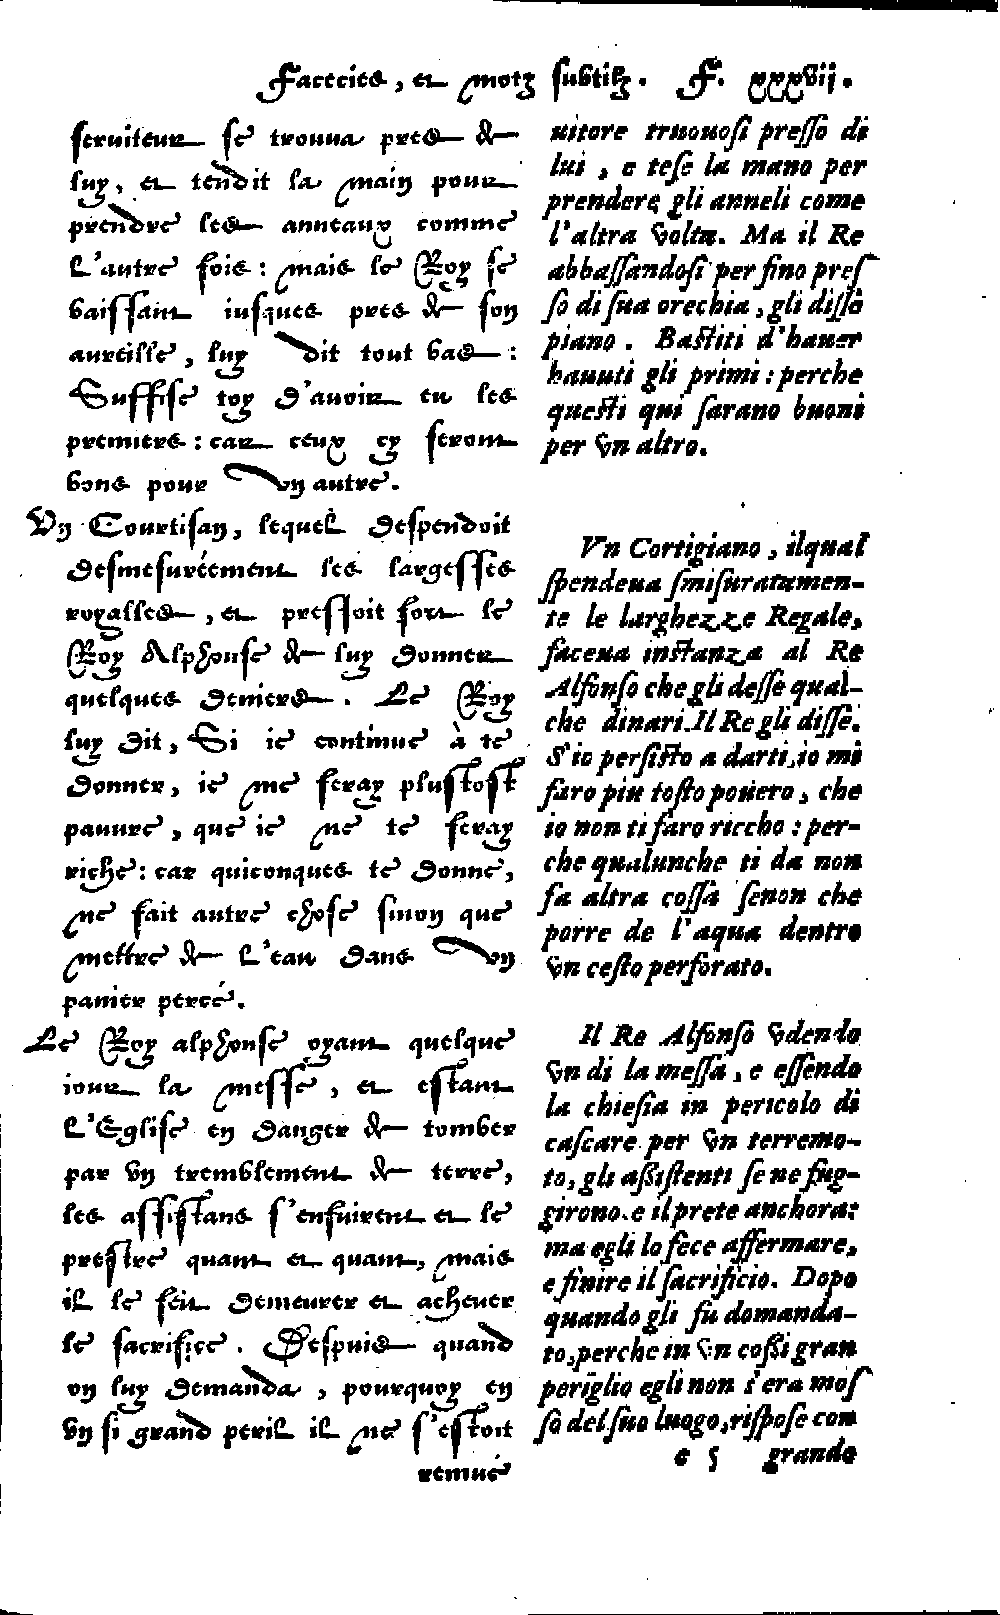 Facecies, et motz subtilz. F. xxxvij.
seruiteur se trouua pres de
luy, et tendit la main pour
prendre les anneaux comme
l'autre fois: mais le Roy se
baissant iusques pres de son
aureille, luy dit tout bas:
Suffise toy d'auoir eu les
premiers: car ceux cy seront
bons pour vn autre.
Vn Courtisan, lequel despendoit
desmesurément les largesses
royalles, et pressoit fort le
Roy Alphonse de luy donner
quelques deniers. Le Roy
luy dit, Si ie continue à te
donner, ie me feray plustost
pauure, que ie ne te feray
riche: car quiconques te donne,
ne fait autre chose sinon que
mettre de l'eau dans vn
panier percé.
Le Roy alphonse oyant quelque
iour la messe, et estant
l'Eglise en danger de tomber
par vn tremblement de terre,
les assistans s'enfuirent et le
prestre quant et quant, mais
il le feit demeurer et acheuer
le sacrifice. Despuis quand
on luy demanda, pourquoy en
vn si grand peril il ne s'estoit
remué
uitore truouosi presso di
lui, e tese la mano per
prendere gli anneli come
l'altra volta. Ma il Re
abbassandosi per fino pres
so di sua orechia, gli disse
piano. Bastiti d'hauer
hauuti gli primi: perche
questi qui sarano buoni
per vn altro.
Vn Cortigiano, ilqual
spendeua smisuratamen-
te le larghezze Regale,
faceua instanza al Re
Alfonso che gli desse qual-
che dinari. Il Re gli disse.
S'io persisto a darti, io mi
faro piu tosto pouero, che
io non ti faro riccho: per-
che qualunche ti da non
fa altra cossa senon che
porre de l'aqua dentro
vn cesto perforato.
Il Re Alfonso vdendo
vn di la messa, e essendo
la chiesia in pericolo di
cascare per vn terremo-
to, gli assistenti se ne fug-
girono. e il prete anchora:
ma egli lo fece affermare,
e finire il sacrificio. Dopo
quando gli fu domanda-
to, perche in vn cossi gran
periglio egli non s'era mos
so del suo luogo, rispose con
e 5 grande